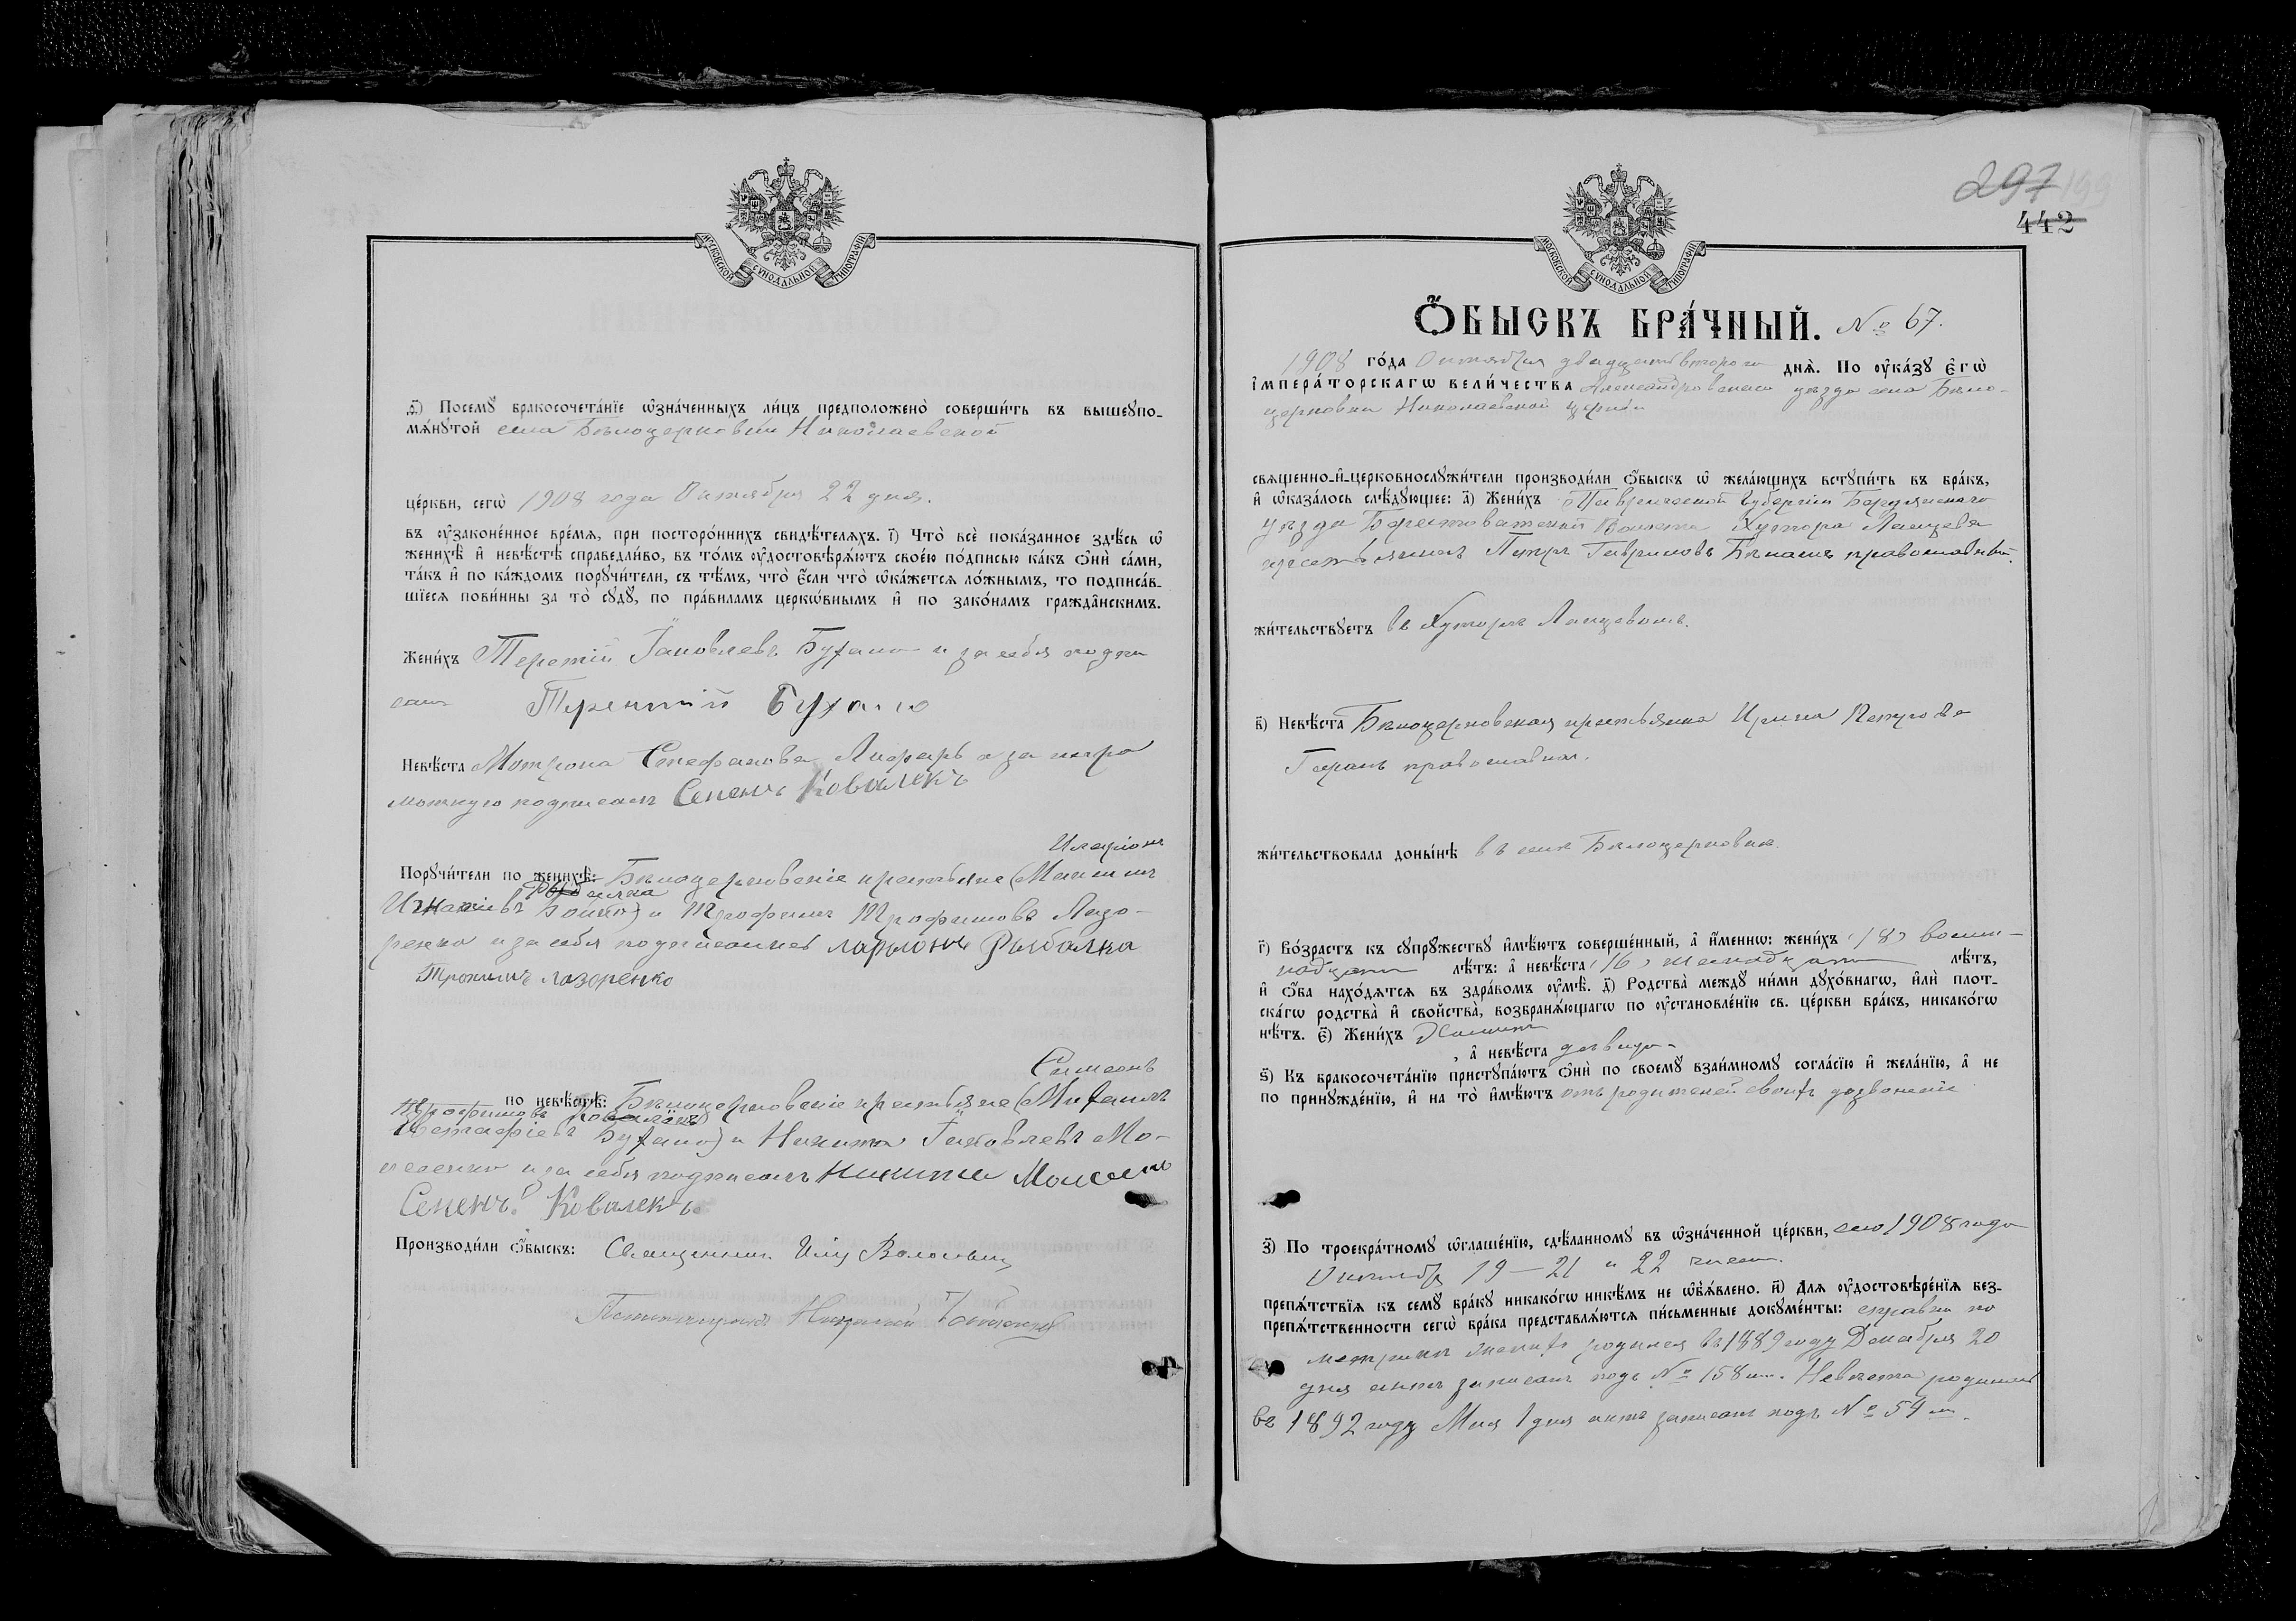 МОСКОВСКОЙ СѴНОДАЛЬНОЙ ТИПОГРАФІИ
д҃і) Посемꙋ̀ бракосочета́нїе ѡ҆зна́ченныхъ ли́цъ предположено̀ соверши́ть въ вышеꙋпо-
мѧ́нꙋтой села Бѣлоцерковки Николаевской
це́ркви, сегѡ̀ 1908 года Октября 22 дня.
въ ᲂу҆зако́ненное вре́мѧ, при посторо́ннихъ свидѣ́телѧхъ. і҃) Что̀ всѐ пока́занное здѣ́сь ѡ҆
женихѣ̀ и҆ невѣ́стѣ справедли́во, въ то́мъ ᲂу҆достовѣрѧ́ютъ свое́ю по́дписью ка́къ ѻ҆нѝ са́ми,
та́къ и҆ по ка́ждомъ порꙋчи́тели, съ тѣ́мъ, что̀ є҆́сли что̀ ѡ҆ка́жетсѧ ло́жнымъ, то подписа́в-
шїесѧ пови́нны за то̀ сꙋдꙋ̀, по пра́виламъ церкѡ́внымъ и҆ по зако́намъ гражда̑нскимъ.
Жени́хъ Терентій Іаковлевъ Бухало и за себя подпи
салъ Терентій Бухало
Невѣ́ста Мотрона Стефанова Лифарь а за негра
мотную подписалъ Семенъ Ковалекъ
Иларіонъ
Порꙋчи́тели по женихѣ̀: Бѣлоцерковскіе крестьяне (Максимъ
Рыбалка
Игнатіевъ Бойко) и Трофимъ Трофимовъ Лазо-
ренко и за себя подписались Ларіонъ Рыбалка
Трохимъ Лазоренко
Симеонъ
по невѣ́стѣ: Бѣлоцерковскіе крестьяне (Михаилъ
Трофимовъ
Евстафіевъ Бухало) и Никита Іаковлевъ Мо-
исеенко и за себя подписалъ Никита
Семенъ Ковалекъ
Производи́ли ѻ҆́быскъ: Священникъ
Псаломщикъ Николай
297 199
442
МОСКОВСКОЙ СѴНОДАЛЬНОЙ ТИПОГРАФІИ
Ѻ҆́БЫСКЪ БРА́ЧНЫЙ. № 67.
1908 го́да Октября двадцать второго днѧ̀. По ᲂу҆ка́зꙋ є҆гѡ̀
і҆мпера́торскагѡ вели́чества Александровскаго уѣзда села Бѣло-
церковки Николаевской церкви
свѧщенно-и҆-церковнослꙋжи́тели производи́ли ѻ҆́быскъ ѡ҆ жела́ющихъ встꙋпи́ть въ бра́къ,
и҆ ѡ҆каза́лось слѣ́дꙋющее: а҃) Жени́хъ Таврической губерніи Бердянскаго
уѣзда Берестоватской волости Хутора Ланцева
крестьянинъ Петръ Гавриловъ Бѣлашъ православный.
жи́тельствꙋетъ въ Хуторѣ Ланцевомъ.
в҃) Невѣ́ста Бѣлоцерковская крестьянка Ирина Петрова
православная.
жи́тельствовала доны́нѣ въ селѣ Бѣлоцерковкѣ.
г҃) Во́зрастъ къ сꙋпрꙋ́жествꙋ и҆мѣ́ютъ соверше́нный, а҆ и҆́меннѡ: жени́хъ (18) восем-
надцати лѣ́тъ: а҆ невѣ́ста (16) шестнадцати лѣ́тъ,
и҆ ѻ҆́ба нахо́дѧтсѧ въ здра́вомъ ᲂу҆мѣ̀. д҃) Родства̀ междꙋ ни́ми дꙋхо́внагѡ, и҆лѝ плот-
ска́гѡ родства̀ и҆ сво́йства̀, возбранѧ́ющагѡ по ᲂу҆становле́нїю св. це́ркви бра́къ, никако́гѡ
нѣ́тъ. є҃) Жени́хъ Холостъ
, а҆ невѣ́ста дѣвица
ѕ҃) Къ бракосочета́нїю пристꙋпа́ютъ ѻ҆нѝ по своемꙋ̀ взаи́мномꙋ согла́сїю и҆ жела́нїю, а҆ не
по принꙋжде́нїю, и҆ на то̀ и҆мѣ́ютъ отъ родителей своихъ дозволеніе
з҃) По троекра́тномꙋ ѡ҆глаше́нїю, сдѣ́ланномꙋ въ ѡ҆зна́ченной це́ркви, сего 1908 года
Октября 19 — 21 и 22 числ.
препѧ́тствїѧ къ семꙋ̀ бра́кꙋ никако́гѡ никѣ́мъ не ѡ҆бъѧ́влено. и҃) Длѧ ᲂу҆достовѣре́нїѧ без-
препѧ́тственности сегѡ̀ бра́ка представлѧ́ютсѧ пи́сьменные докꙋме́нты: справка по
метрикѣ Женихъ родился въ 1889 году Декабря 20
дня актъ записанъ подъ № 158 м. Невѣста родилась
въ 1892 году Мая 1 дня актъ записанъ подъ № 54 м.